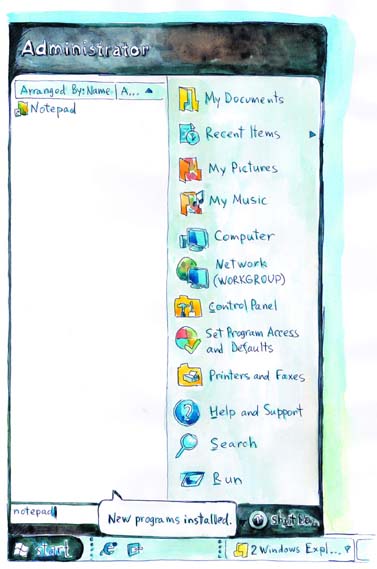 Administrator
Arranged By: Name
A...
Notepad
My Documents
Recent Items
My Pictures
My Music
Computer
Network
(WORKGROUP)
Control Panel
Set Program Access
and Defaults
Printers and Faxes
Help and Support
Search
Run
notepad
New programs installed.
start
2 Windows Expl...